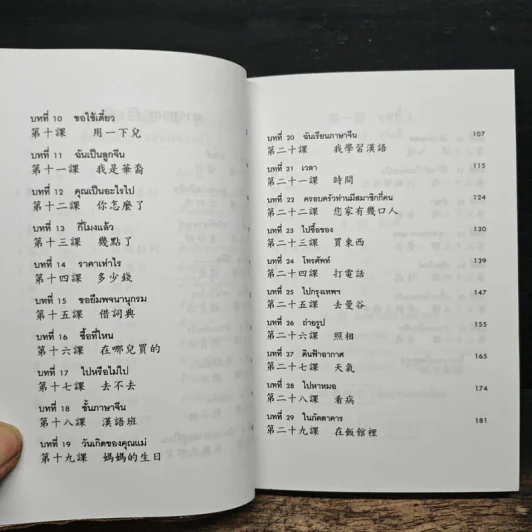 บทที่ 10 ขอใช้เดี๋ยว
第十課 用一下兒
บทที่ 11 ฉันเป็นลูกจีน
第十一課 我是華裔
บทที่ 12 คุณเป็นอะไรไป
第十二課 你怎麼了
บทที่ 13 กี่โมงแล้ว
第十三課 幾點了
บทที่ 14 ราคาเท่าไร
第十四課 多少錢
บทที่ 15 ขอยืมพจนานุกรม
第十五課 借詞典
บทที่ 16 ซื้อที่ไหน
第十六課 在哪兒買的
บทที่ 17 ไปหรือไม่ไป
第十七課 去不去
บทที่ 18 ชั้นภาษาจีน
第十八課 漢語班
บทที่ 19 วันเกิดของคุณแม่
第十九課 媽媽的生日
บทที่ 20 ฉันเรียนภาษาจีน 107
第二十課 我學習漢語
บทที่ 21 เวลา 115
第二十一課 時間
บทที่ 22 ครอบครัวท่านมีสมาชิกกี่คน 124
第二十二課 您家有幾口人
บทที่ 23 ไปซื้อของ 130
第二十三課 買東西
บทที่ 24 โทรศัพท์ 139
第二十四課 打電話
บทที่ 25 ไปกรุงเทพฯ 147
第二十五課 去曼谷
บทที่ 26 ถ่ายรูป 155
第二十六課 照相
บทที่ 27 ดินฟ้าอากาศ 165
第二十七課 天氣
บทที่ 28 ไปหาหมอ 174
第二十八課 看病
บทที่ 29 ในภัตตาคาร 181
第二十九課 在飯館裡